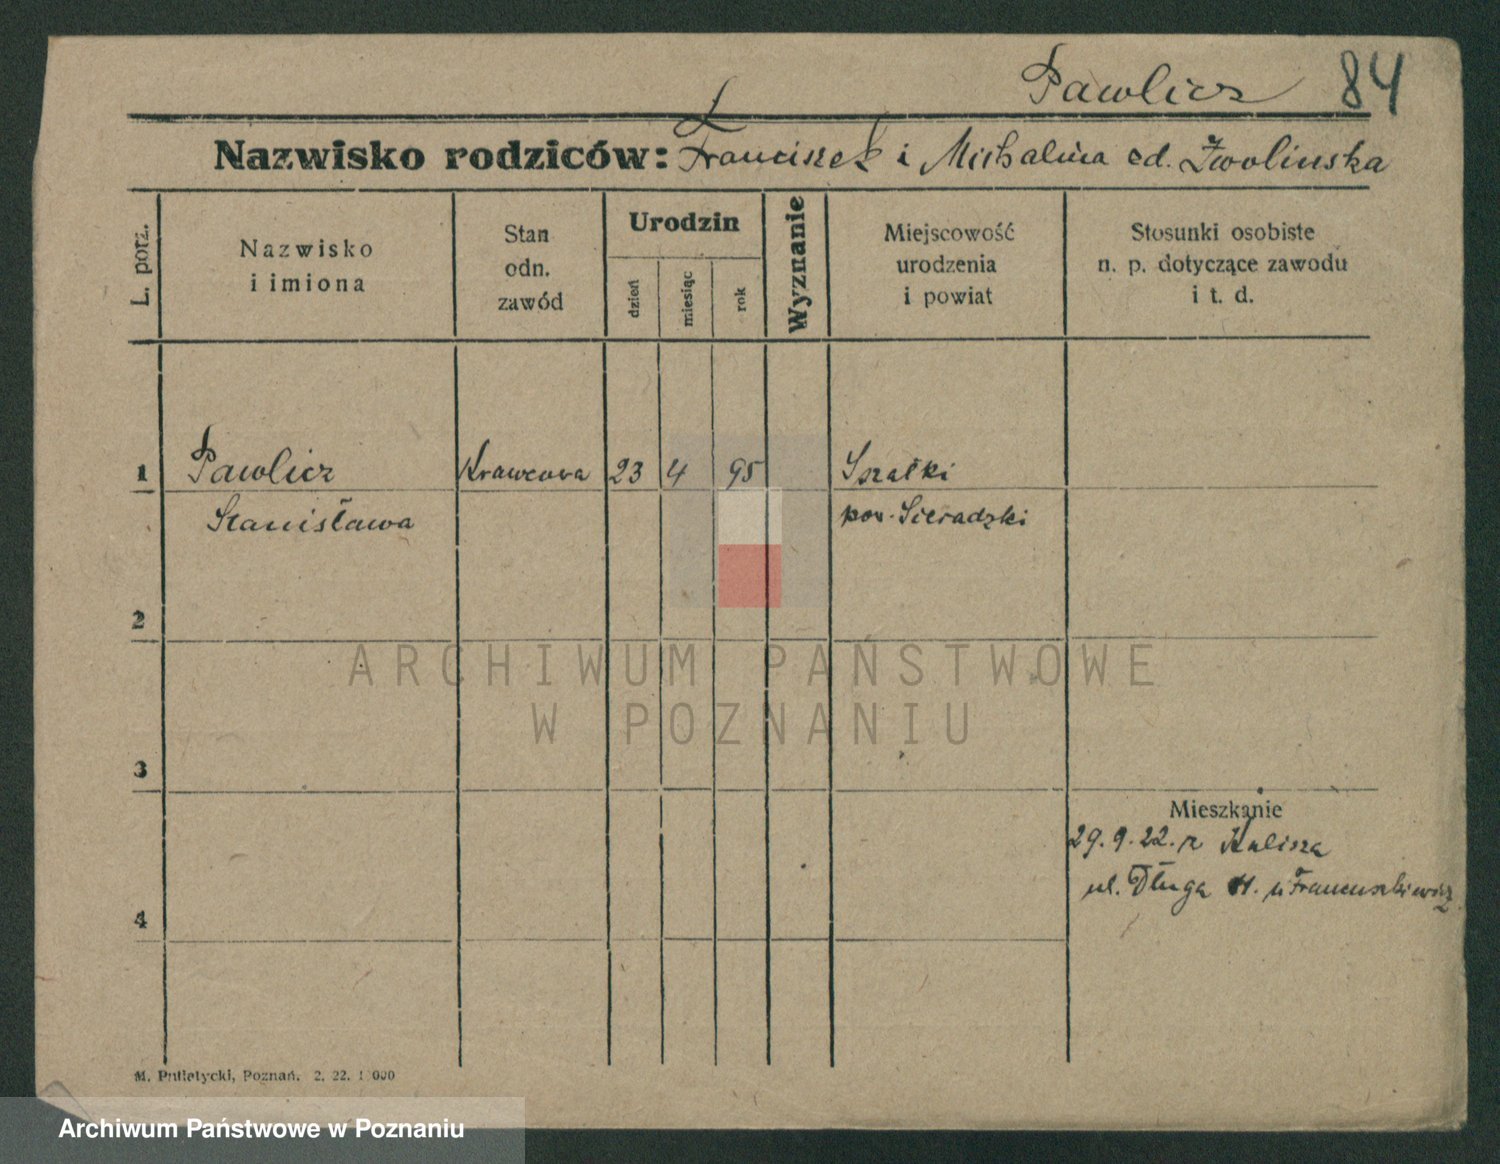 Pawlicz 84
Nazwisko rodziców: Franciszek i Michalina od. Zwolinska
L. porz.
Nazwisko
i imiona
Stan
odn.
zawód
Urodzin
dzień
miesiąc
rok
Wyznanie
Miejscowość
urodzenia
i powiat
Stosunki osobiste
n. p. dotyczące zawodu
i t. d.
1 Pawlicz Krawcowa 23 4 95 Szałki
Stanisława pow. Sieradzki
2
ARCHIWUM PAŃSTWOWE
W POZNANIU
3
Mieszkanie
29.9.22. z Kalisza
ul. Długa 11. u Franciszkiewicz
4
M. Putiatycki, Poznań. 2. 22. 1 000
Archiwum Państwowe w Poznaniu